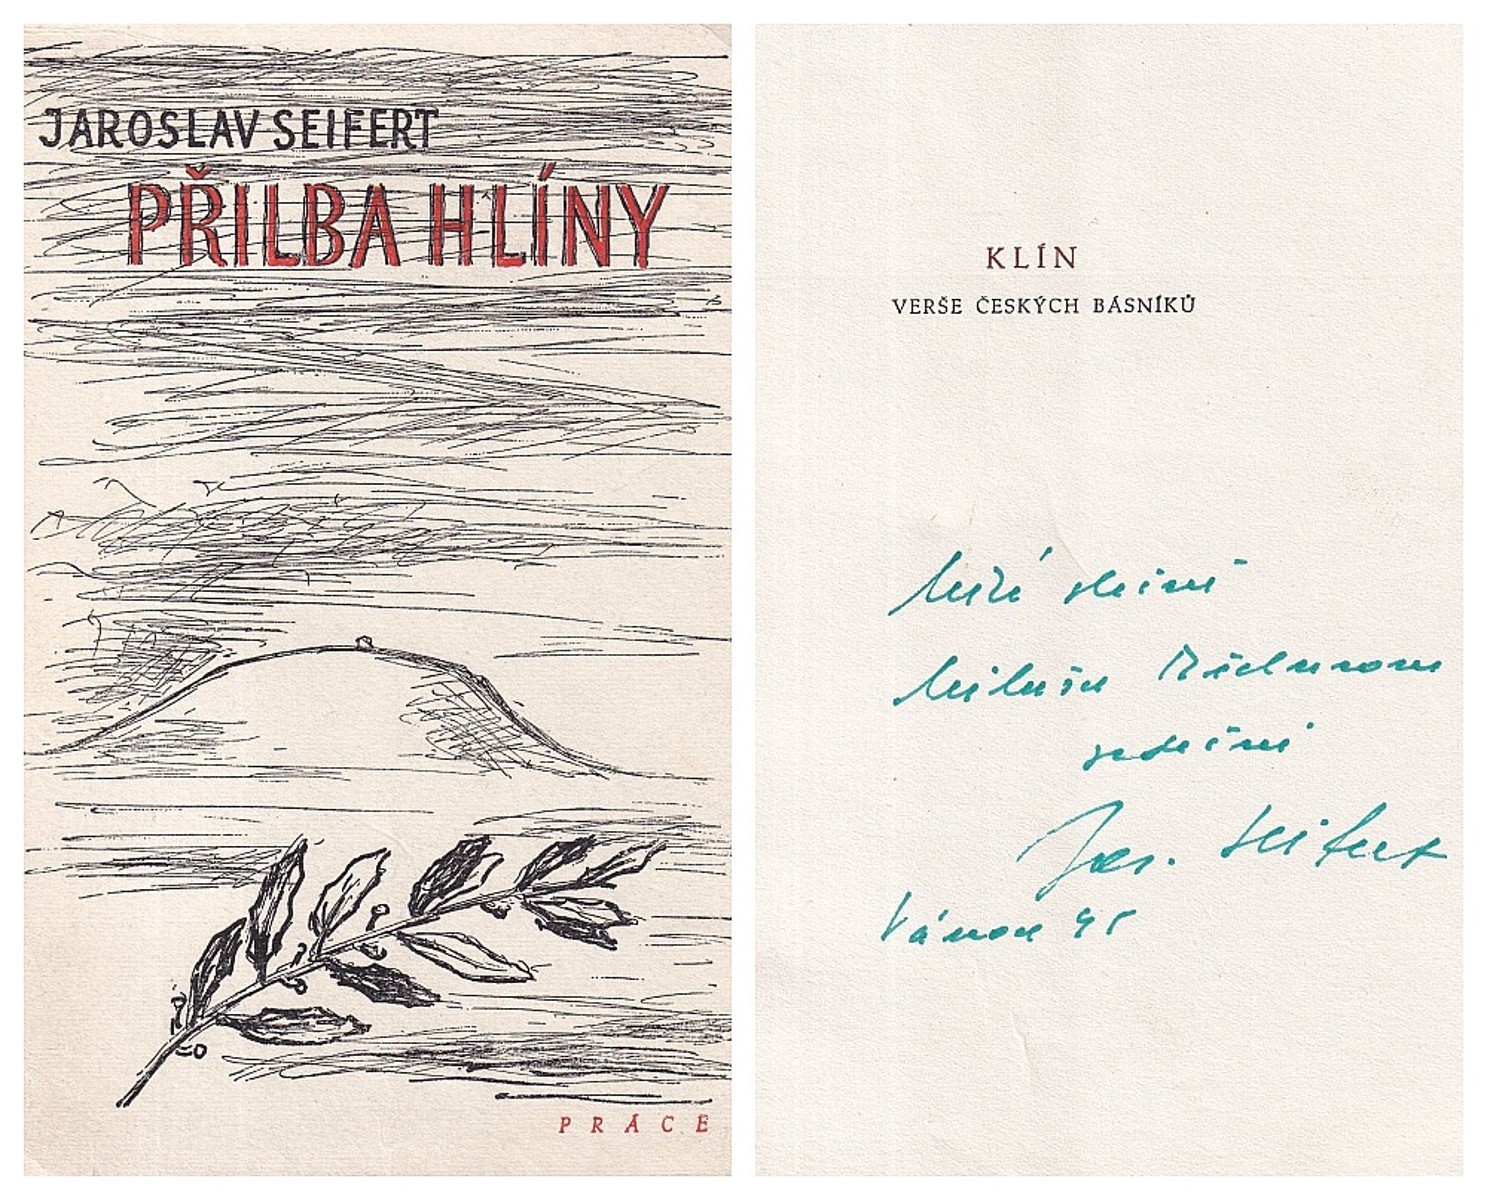 JAROSLAV SEIFERT
PŘILBA HLÍNY
PRÁCE
KLÍN
VERŠE ČESKÝCH BÁSNÍKŮ
Milé
srdečně
Jar. Seifert
Vánoce 45